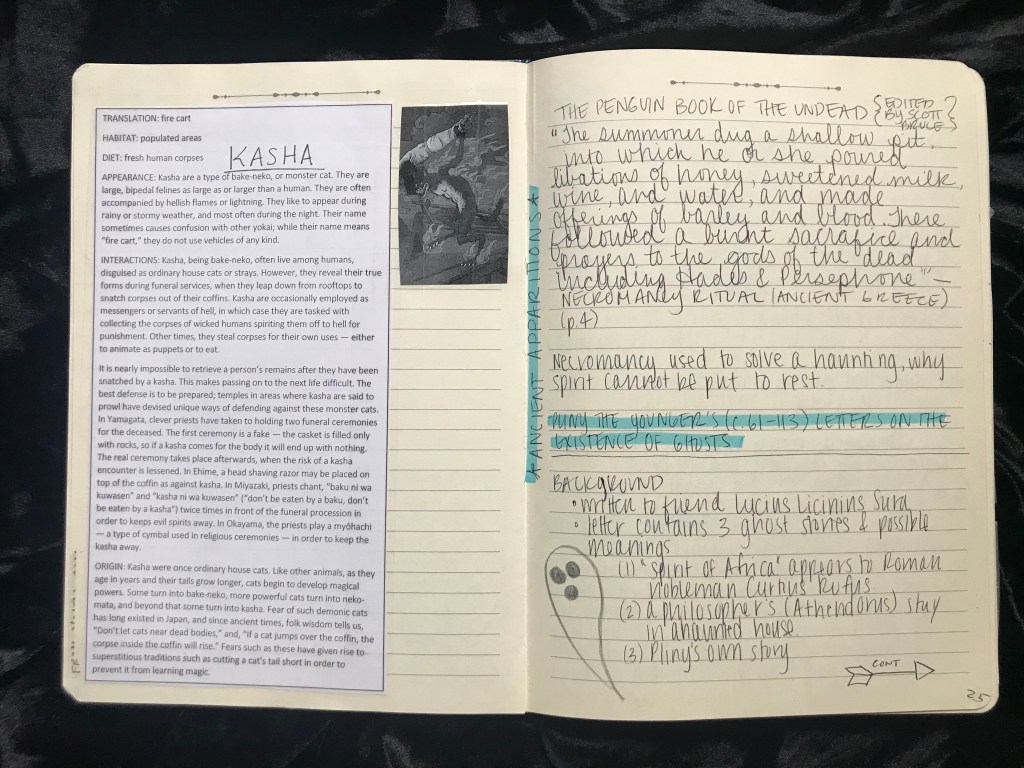 TRANSLATION: fire cart
HABITAT: populated areas
DIET: fresh human corpses
KASHA
APPEARANCE: Kasha are a type of bake-neko, or monster cat. They are
large, bipedal felines as large as or larger than a human. They are often
accompanied by hellish flames or lightning. They like to appear during
rainy or stormy weather, and most often during the night. Their name
sometimes causes confusion with other yokai; while their name means
“fire cart,” they do not use vehicles of any kind.
INTERACTIONS: Kasha, being bake-neko, often live among humans,
disguised as ordinary house cats or strays. However, they reveal their true
forms during funeral services, when they leap down from rooftops to
snatch corpses out of their coffins. Kasha are occasionally employed as
messengers or servants of hell, in which case they are tasked with
collecting the corpses of wicked humans spiriting them off to hell for
punishment. Other times, they steal corpses for their own uses — either
to animate as puppets or to eat.
It is nearly impossible to retrieve a person’s remains after they have been
snatched by a kasha. This makes passing on to the next life difficult. The
best defense is to be prepared; temples in areas where kasha are said to
prowl have devised unique ways of defending against these monster cats.
In Yamagata, clever priests have taken to holding two funeral ceremonies
for the deceased. The first ceremony is a fake — the casket is filled only
with rocks, so if a kasha comes for the body it will end up with nothing.
The real ceremony takes place afterwards, when the risk of a kasha
encounter is lessened. In Ehime, a head shaving razor may be placed on
top of the coffin as against kasha. In Miyazaki, priests chant, “baku ni wa
kuwasen” and “kasha ni wa kuwasen” (“don’t be eaten by a baku, don’t
be eaten by a kasha”) twice times in front of the funeral procession in
order to keep evil spirits away. In Okayama, the priests play a myōhachi
— a type of cymbal used in religious ceremonies — in order to keep the
kasha away.
ORIGIN: Kasha were once ordinary house cats. Like other animals, as they
age in years and their tails grow longer, cats begin to develop magical
powers. Some turn into bake-neko, more powerful cats turn into neko-
mata, and beyond that some turn into kasha. Fear of such demonic cats
has long existed in Japan, and since ancient times, folk wisdom tells us,
“Don’t let cats near dead bodies,” and, “If a cat jumps over the coffin, the
corpse inside the coffin will rise.” Fears such as these have given rise to
superstitious traditions such as cutting a cat’s tail short in order to
prevent it from learning magic.
★ ANCIENT APPARITIONS ★
THE PENGUIN BOOK OF THE UNDEAD {EDITED
BY SCOTT
BRUCE}
"The summoner dug a shallow pit,
into which he or she poured
libations of honey, sweetened milk,
wine, and water, and made
offerings of barley and blood. There
followed a burnt sacrafice and
prayers to the gods of the dead
including Hades & Persephone" –
NECROMANCY RITUAL (ANCIENT GREECE)
(p.4)
Necromancy used to solve a haunting, why
spirit cannot be put to rest.
PLINY THE YOUNGER'S (C. 61-113) LETTERS ON THE
EXISTENCE OF GHOSTS
BACKGROUND
• written to friend Lycius Licinins Sura
• letter contains 3 ghost stories & possible
meanings
(1) 'Spirit of Africa' appears to Roman
nobleman Curtius Rufus
(2) a philosopher's (Athendorus) stay
in a haunted house
(3) Pliny's own story
CONT
25